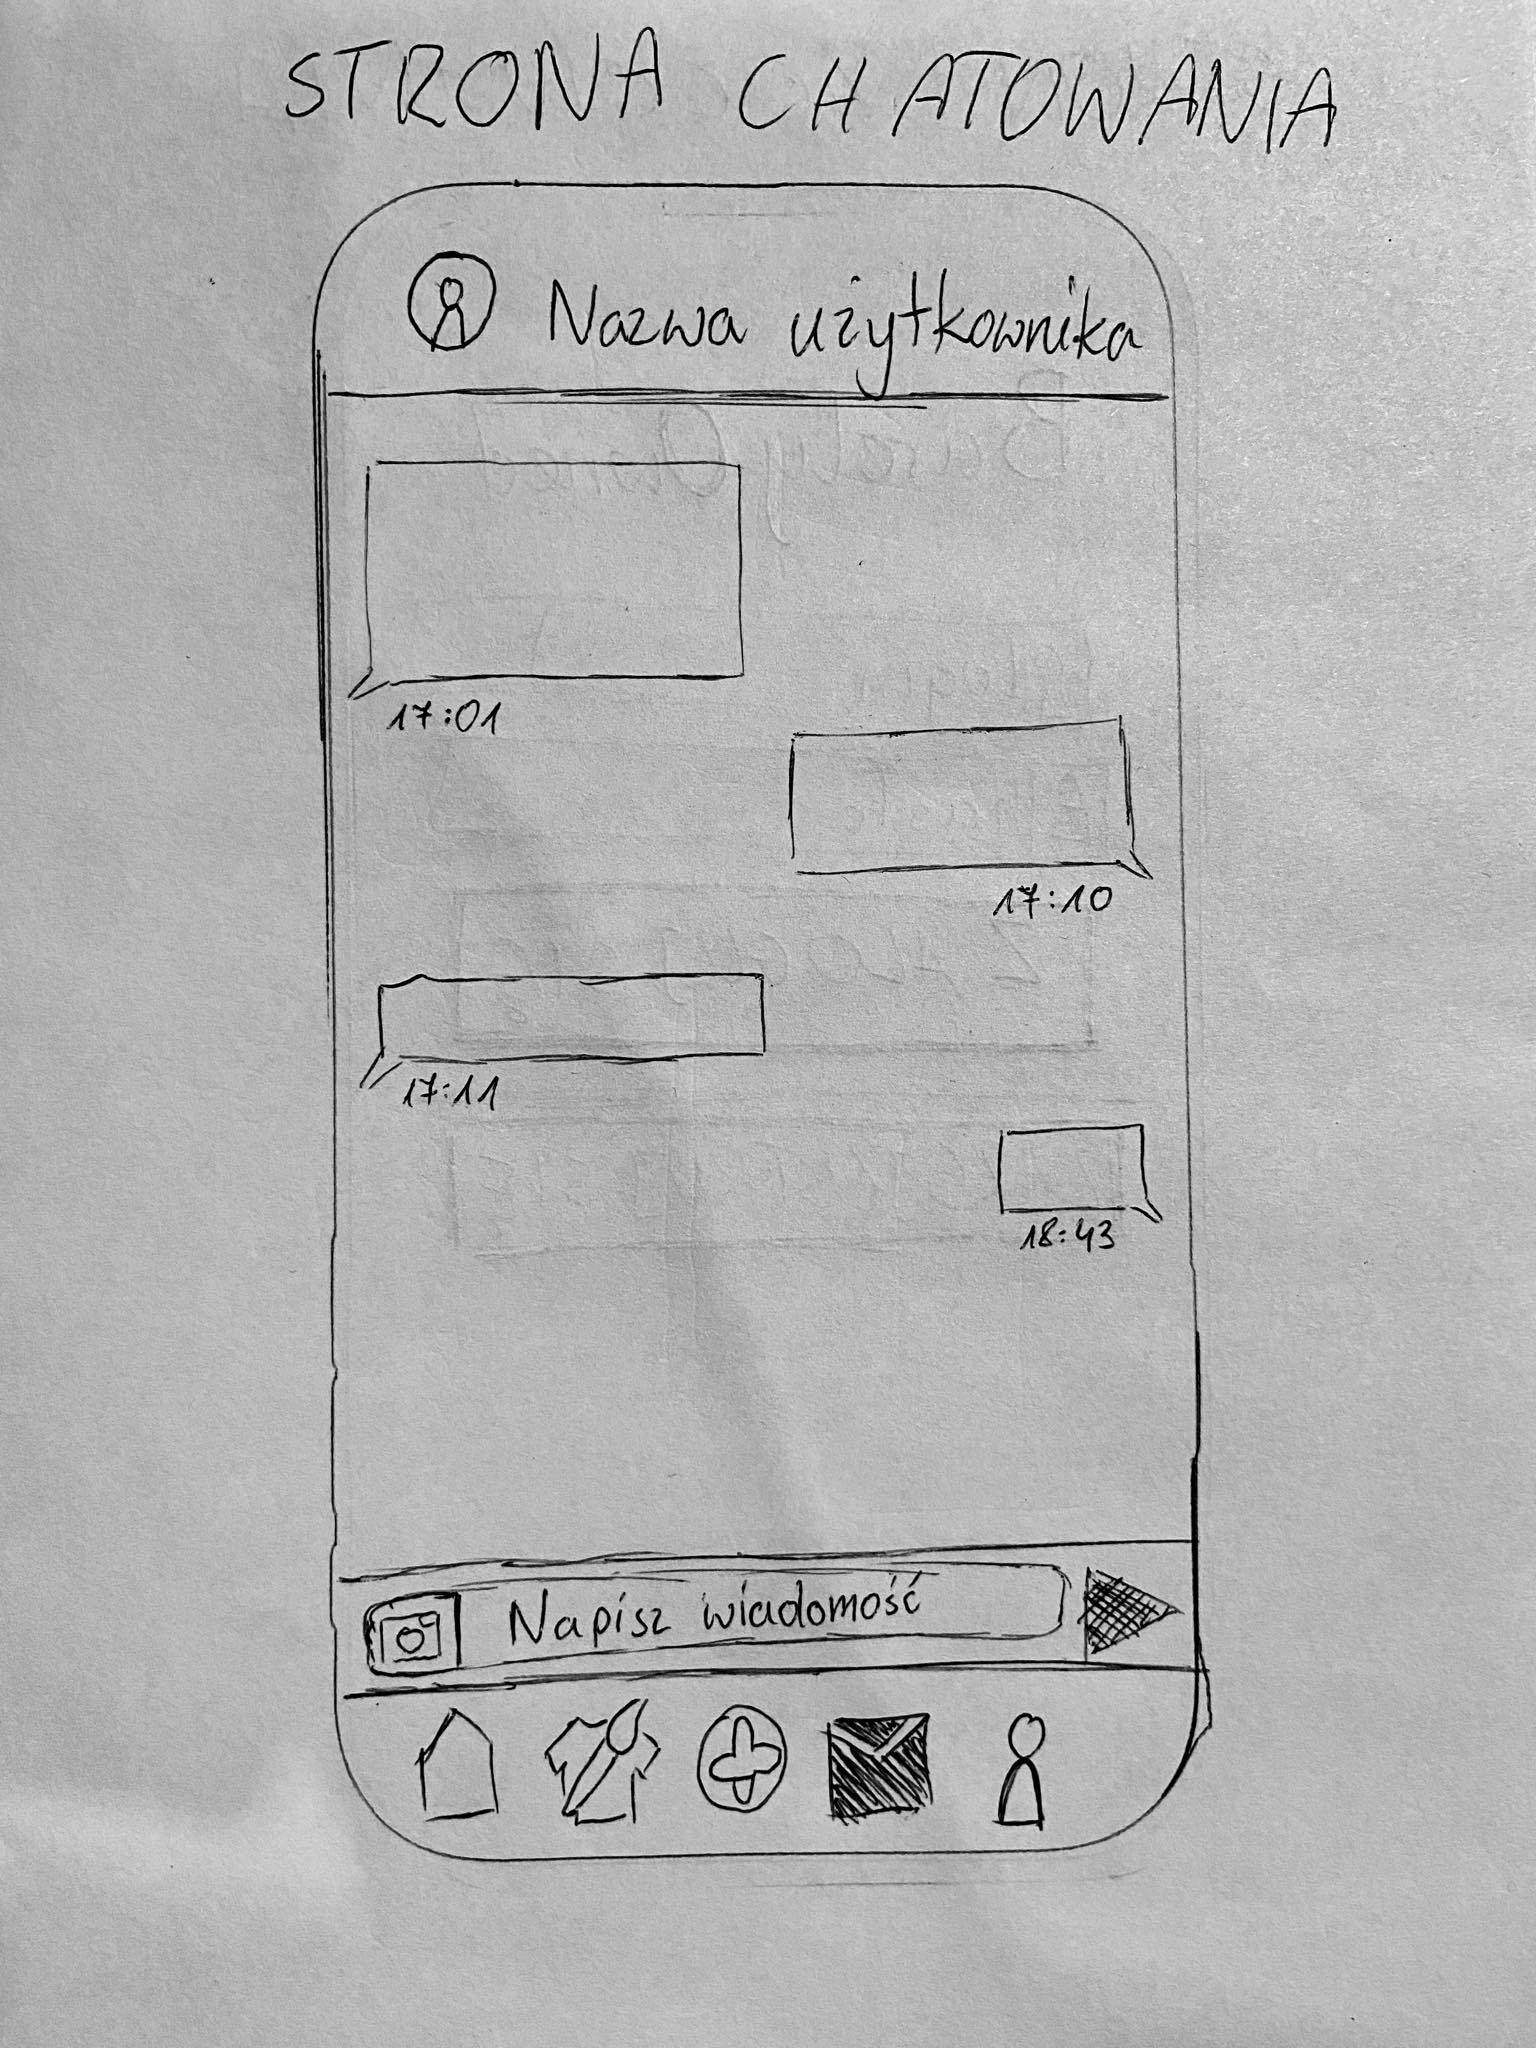 STRONA CHATOWANIA
Nazwa użytkownika
17:01
17:10
17:11
18:43
Napisz wiadomość